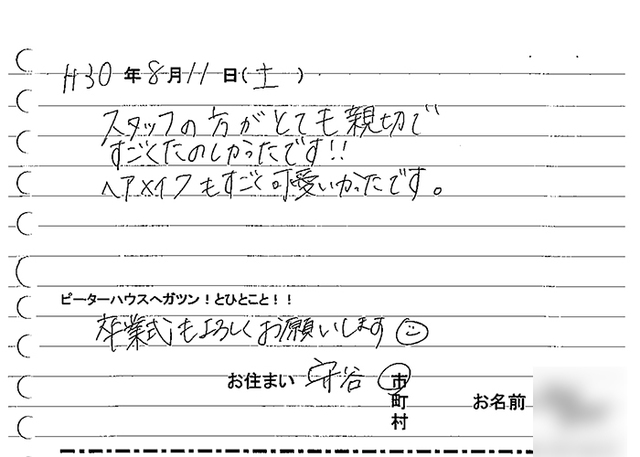 H30 年 8 月 11 日(土)
スタッフの方がとても親切で
すごくたのしかったです!!
ヘアメイクもすごく可愛いかったです。
ピーターハウスへガツン!とひとこと!!
卒業式もよろしくお願いします
お住まい 守谷 市
町
村
お名前